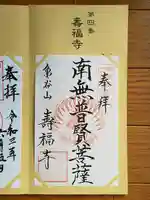 第四番
壽福寺
奉拝
南無普賢菩薩
亀谷山
壽福寺
奉拝
令和三年